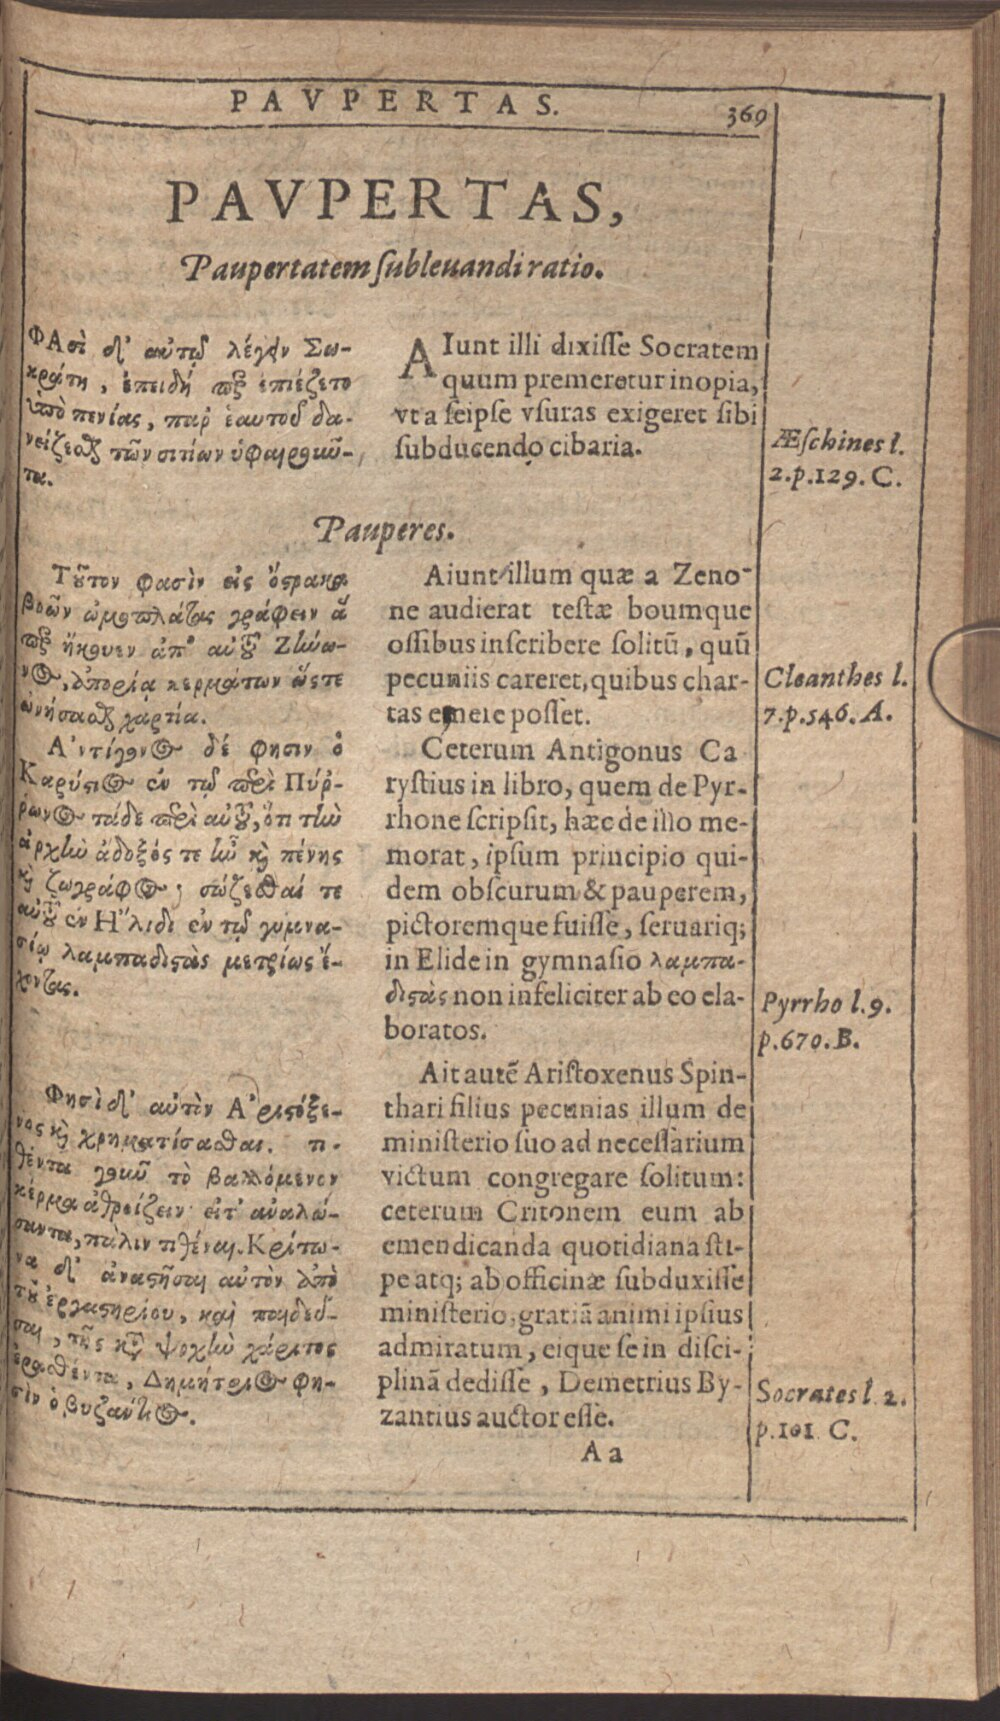 PAVPERTAS.
369
PAVPERTAS,
Paupertatem ſubleuandi ratio.
ΦΑσὶ δ' αὐτῷ λέγειν Σω-
κράτη, ἐπειδὴ περ ἐπιέζετο
ὑπὸ πενίας, παρ' ἑαυτοῦ δα-
νείζεσθαι τῶν σιτίων ὑφαιροῦν-
τα.
AIunt illi dixiſſe Socratem
quum premeretur inopia,
vt a ſeipſe vſuras exigeret ſibi
ſubducendo cibaria.
Æſchines l.
2.p.129.C.
Pauperes.
Τοῦτον φασὶν εἰς ὄστρακα
βοῶν ὠμοπλάτας γράφειν ἃ
περ ἤκουεν ἀπ' αὐτοῦ Ζήνω-
νος, ἀπορίᾳ κερμάτων ὥστε
ὠνήσασθαι χαρτία.
Aiunt illum quæ a Zeno-
ne audierat teſtæ boumque
oſſibus inſcribere ſolitū, quū
pecuniis careret, quibus char-
tas emere poſſet.
Cleanthes l.
7.p.546.A.
Ἀντίγονος δέ φησιν ὁ
Καρύστιος ἐν τῷ περὶ Πύρ-
ρωνος τάδε περὶ αὐτοῦ, ὅτι τὴν
ἀρχὴν ἄδοξός τε ἦν καὶ πένης
καὶ ζωγράφος; σώζεσθαί τε
αὐτοῦ ἐν Ἤλιδι ἐν τῷ γυμνα-
σίῳ λαμπαδιστὰς μετρίως ἔ-
χοντας.
Ceterum Antigonus Ca
ryſtius in libro, quem de Pyr-
rhone ſcripſit, hæc de illo me-
morat, ipſum principio qui-
dem obſcurum & pauperem,
pictoremque fuiſſe, ſeruariq;
in Elide in gymnaſio λαμπα-
διστὰς non infeliciter ab eo ela-
boratos.
Pyrrho l.9.
p.670.B.
Φησὶ δ' αὐτὸν Ἀριστόξε-
νος καὶ χρηματίσασθαι. τι-
θέντα γοῦν τὸ βαλλόμενον
κέρμα ἀθροίζειν εἶτ' ἀναλώ-
σαντα, πάλιν τιθέναι. Κρίτω-
να δ' ἀναστῆσαι αὐτὸν ἀπὸ
τοῦ ἐργαστηρίου, καὶ παιδεῦ-
σαι, τῆς κατὰ ψυχὴν χάριτος
ἐρασθέντα, Δημήτριος φη-
σὶν ὁ βυζάντιος.
Ait autē Ariſtoxenus Spin-
thari filius pecunias illum de
miniſterio ſuo ad neceſſarium
victum congregare ſolitum:
ceterum Critonem eum ab
emendicanda quotidiana ſti-
pe atq; ab officinæ ſubduxiſſe
miniſterio, gratiā animi ipſius
admiratum, eique ſe in diſci-
plinā dediſſe, Demetrius By-
zantius auctor eſſe.
Socrates l.2.
p.101.C.
Aa